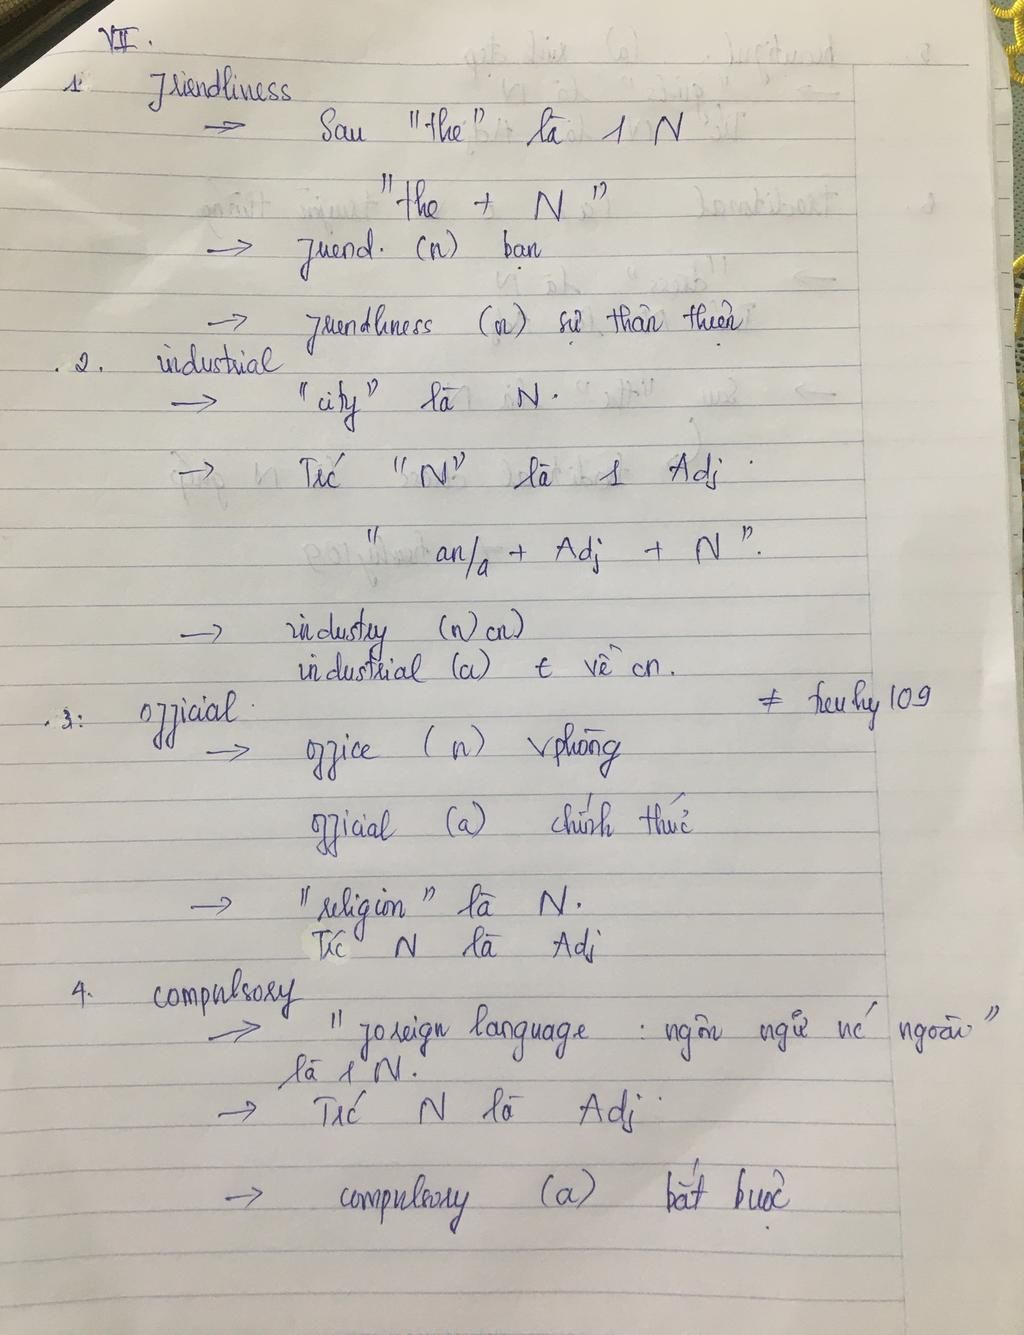 VII.
1. friendliness
→ Sau "the" là 1 N
"the + N"
→ friend. (n) bạn
→ friendliness (n) sự thân thiện
2. industrial
→ "city" là N.
→ Trc "N" là 1 Adj
"an/a + Adj + N".
→ industry (n) cn)
industrial (a) t về cn.
3: official
≠ heuhy109
→ office (n) vphòng
official (a) chính thức
→ "religion" là N.
Trc N là Adj
4. compulsory
→ "foreign language : ngôn ngữ nc ngoài"
là 1 N.
→ Trc N là Adj
→ compulsory (a) bắt buộc